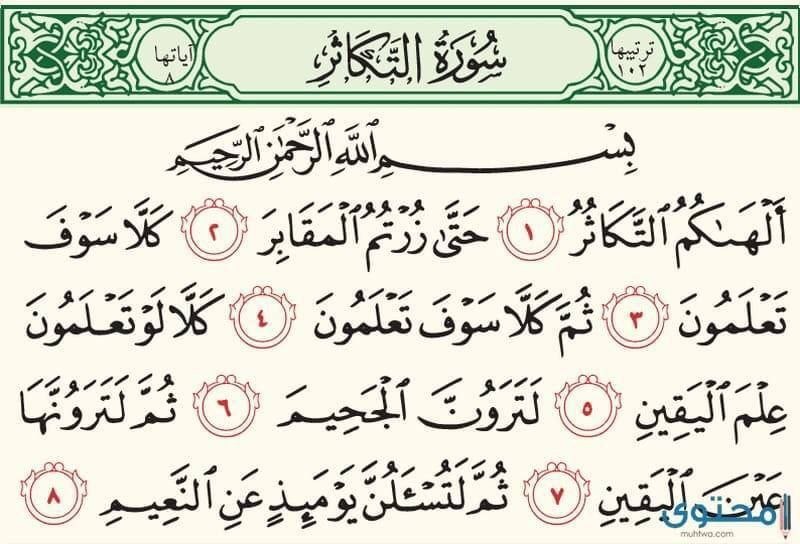 ترتيبها ١٠٢
سُورَةُ التَّكَاثُرِ
آياتها ٨
بِسْمِ ٱللَّهِ ٱلرَّحْمَٰنِ ٱلرَّحِيمِ
أَلْهَىٰكُمُ ٱلتَّكَاثُرُ ١ حَتَّىٰ زُرْتُمُ ٱلْمَقَابِرَ ٢ كَلَّا سَوْفَ
تَعْلَمُونَ ٣ ثُمَّ كَلَّا سَوْفَ تَعْلَمُونَ ٤ كَلَّا لَوْ تَعْلَمُونَ
عِلْمَ ٱلْيَقِينِ ٥ لَتَرَوُنَّ ٱلْجَحِيمَ ٦ ثُمَّ لَتَرَوُنَّهَا
عَيْنَ ٱلْيَقِينِ ٧ ثُمَّ لَتُسْـَٔلُنَّ يَوْمَئِذٍ عَنِ ٱلنَّعِيمِ ٨
محتوى
muhtwa.com